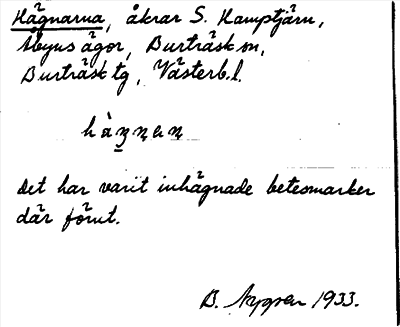 Hägnarna, åkrar S. Kamptjärn,
Åbyns ägor, Burträsk sn,
Burträsk tg, Västerb. l.
Det har varit inhägnade betesmarker
där förut.
B. Nygren 1933.